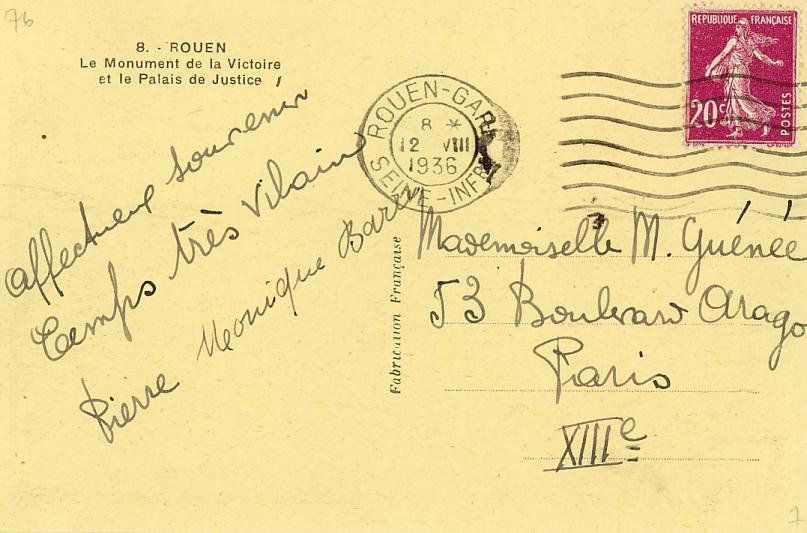 76
8. - ROUEN
Le Monument de la Victoire
et le Palais de Justice
ROUEN-GARE
8 *
12 VIII
1936
SEINE-INFRE
REPUBLIQUE FRANÇAISE
20c
POSTES
affectueux souvenir
Temps très vilain
Pierre Monique
Fabrication Française
Mademoiselle M. Guénée
53 Boulevard Arago
Paris
XIIIe
1